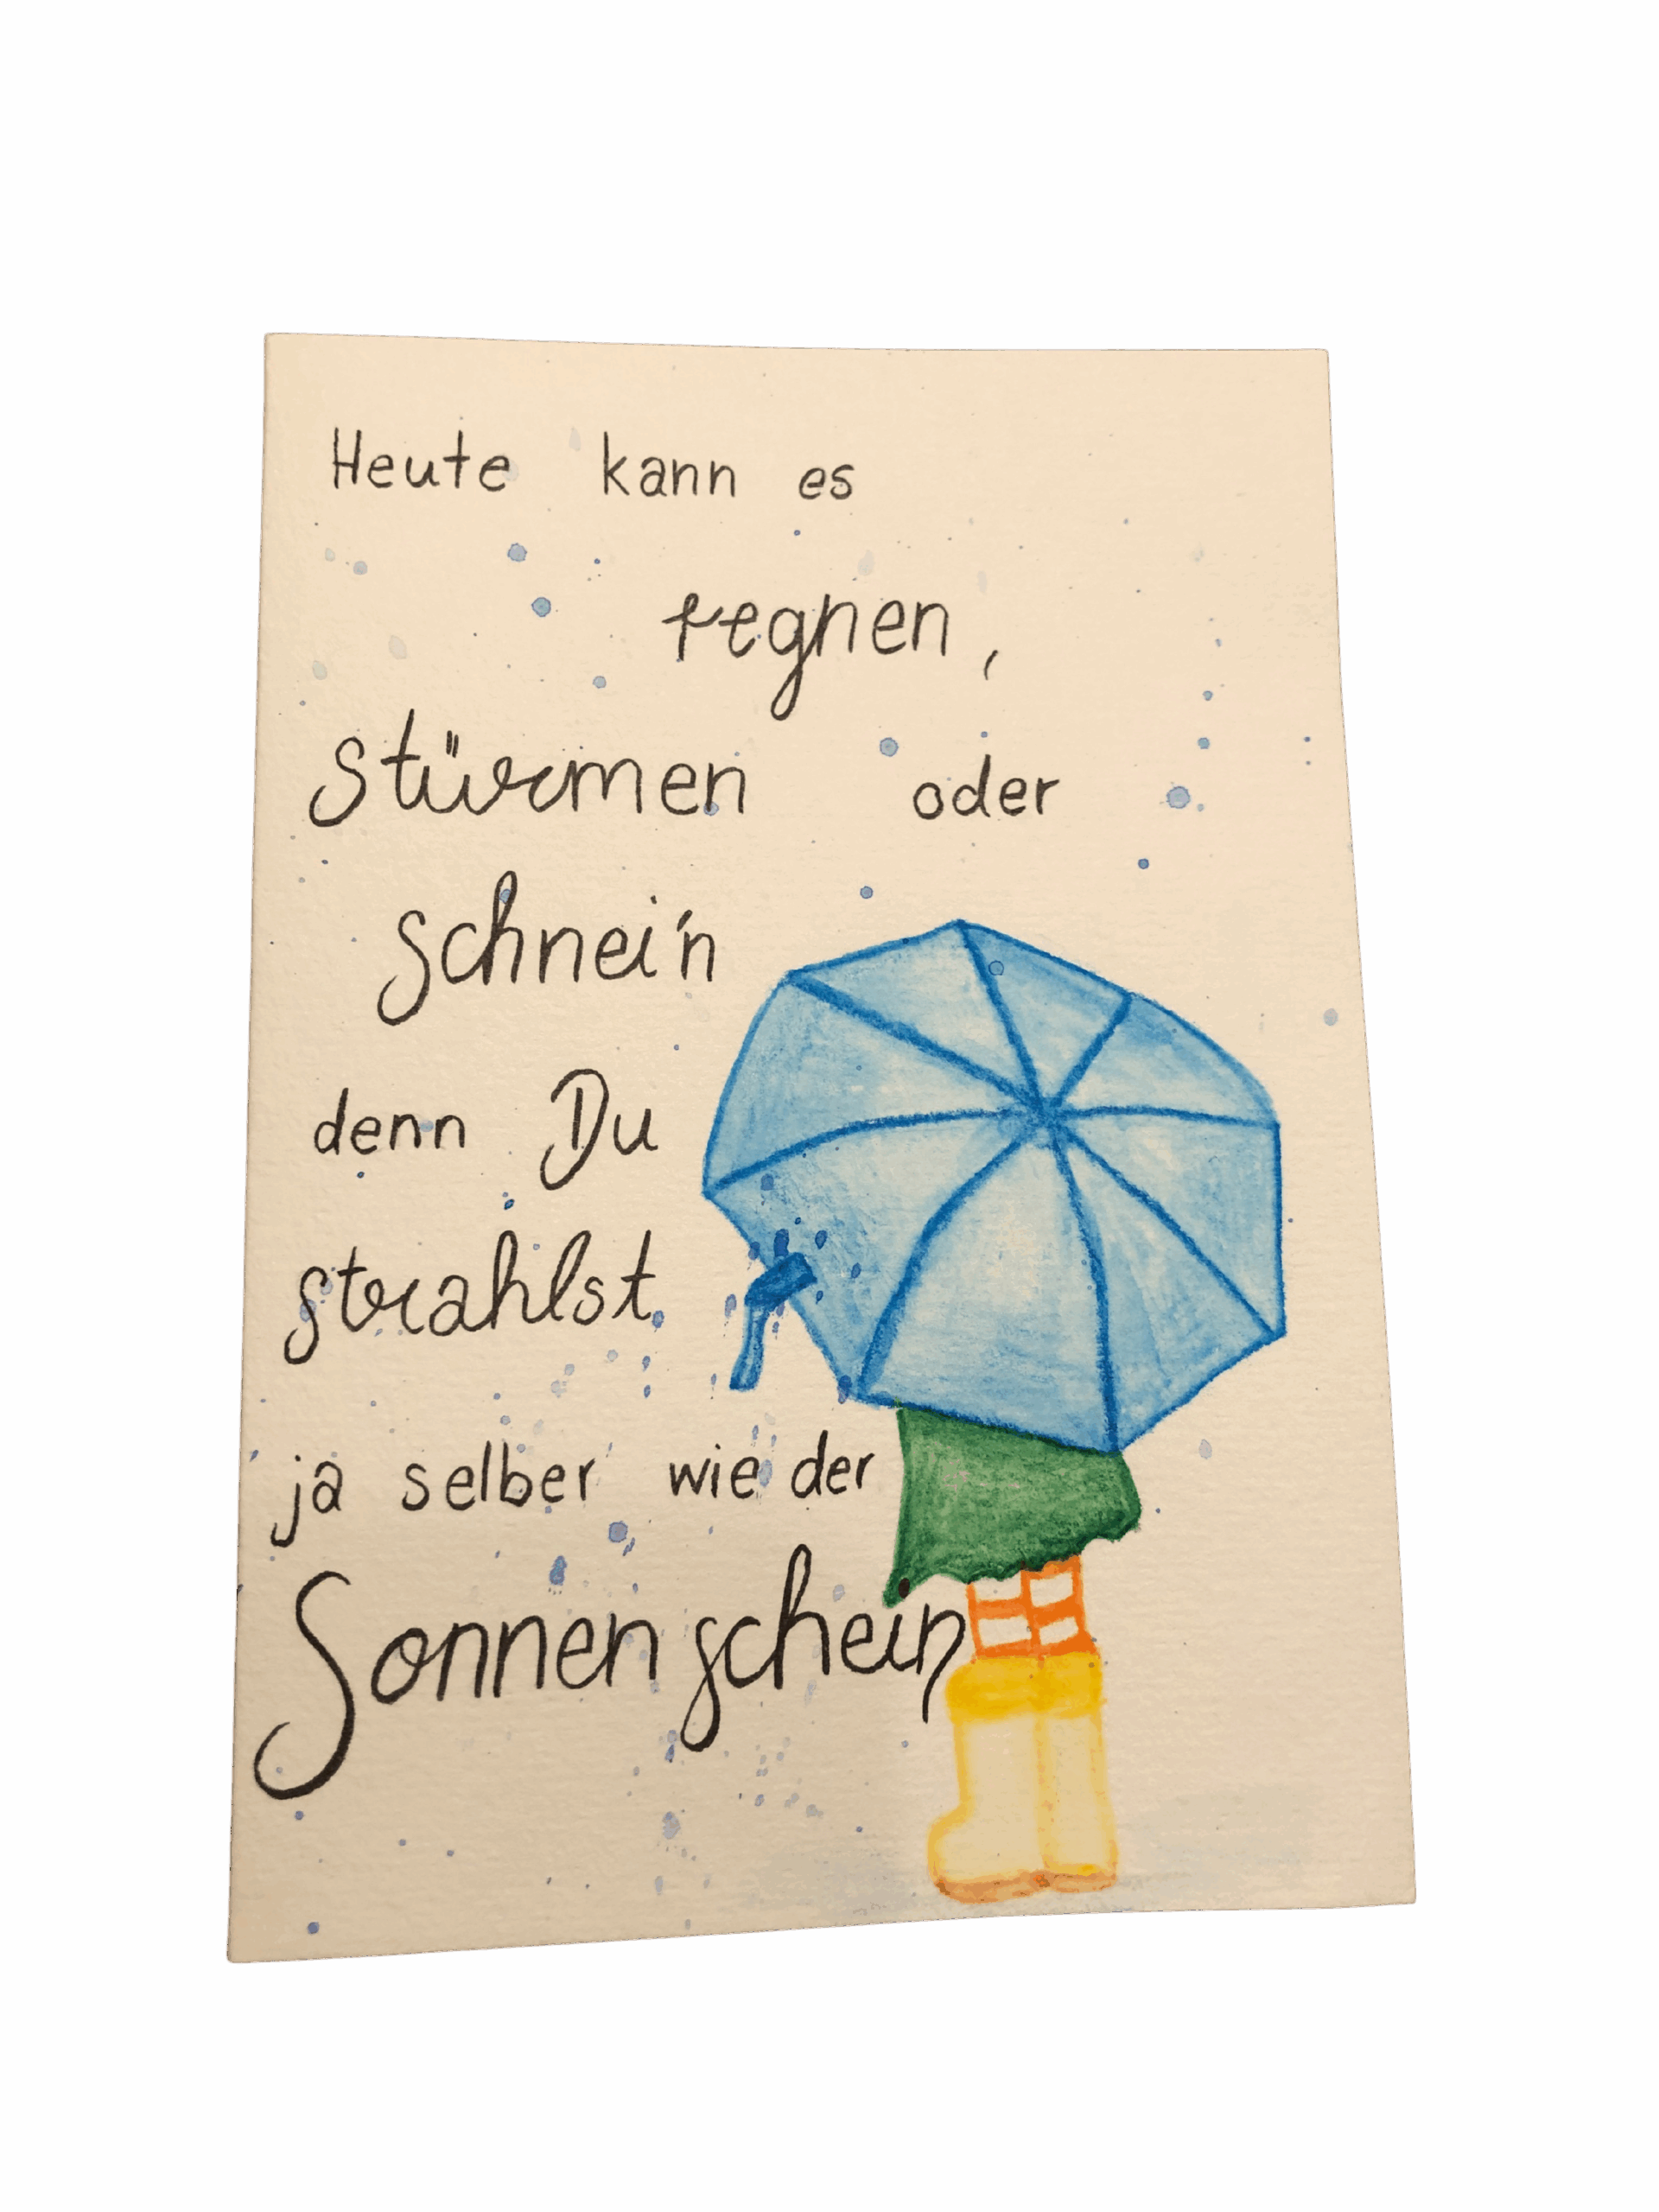 Heute kann es
regnen,
stürmen oder
schnei'n
denn Du
strahlst
ja selber wie der
Sonnenschein